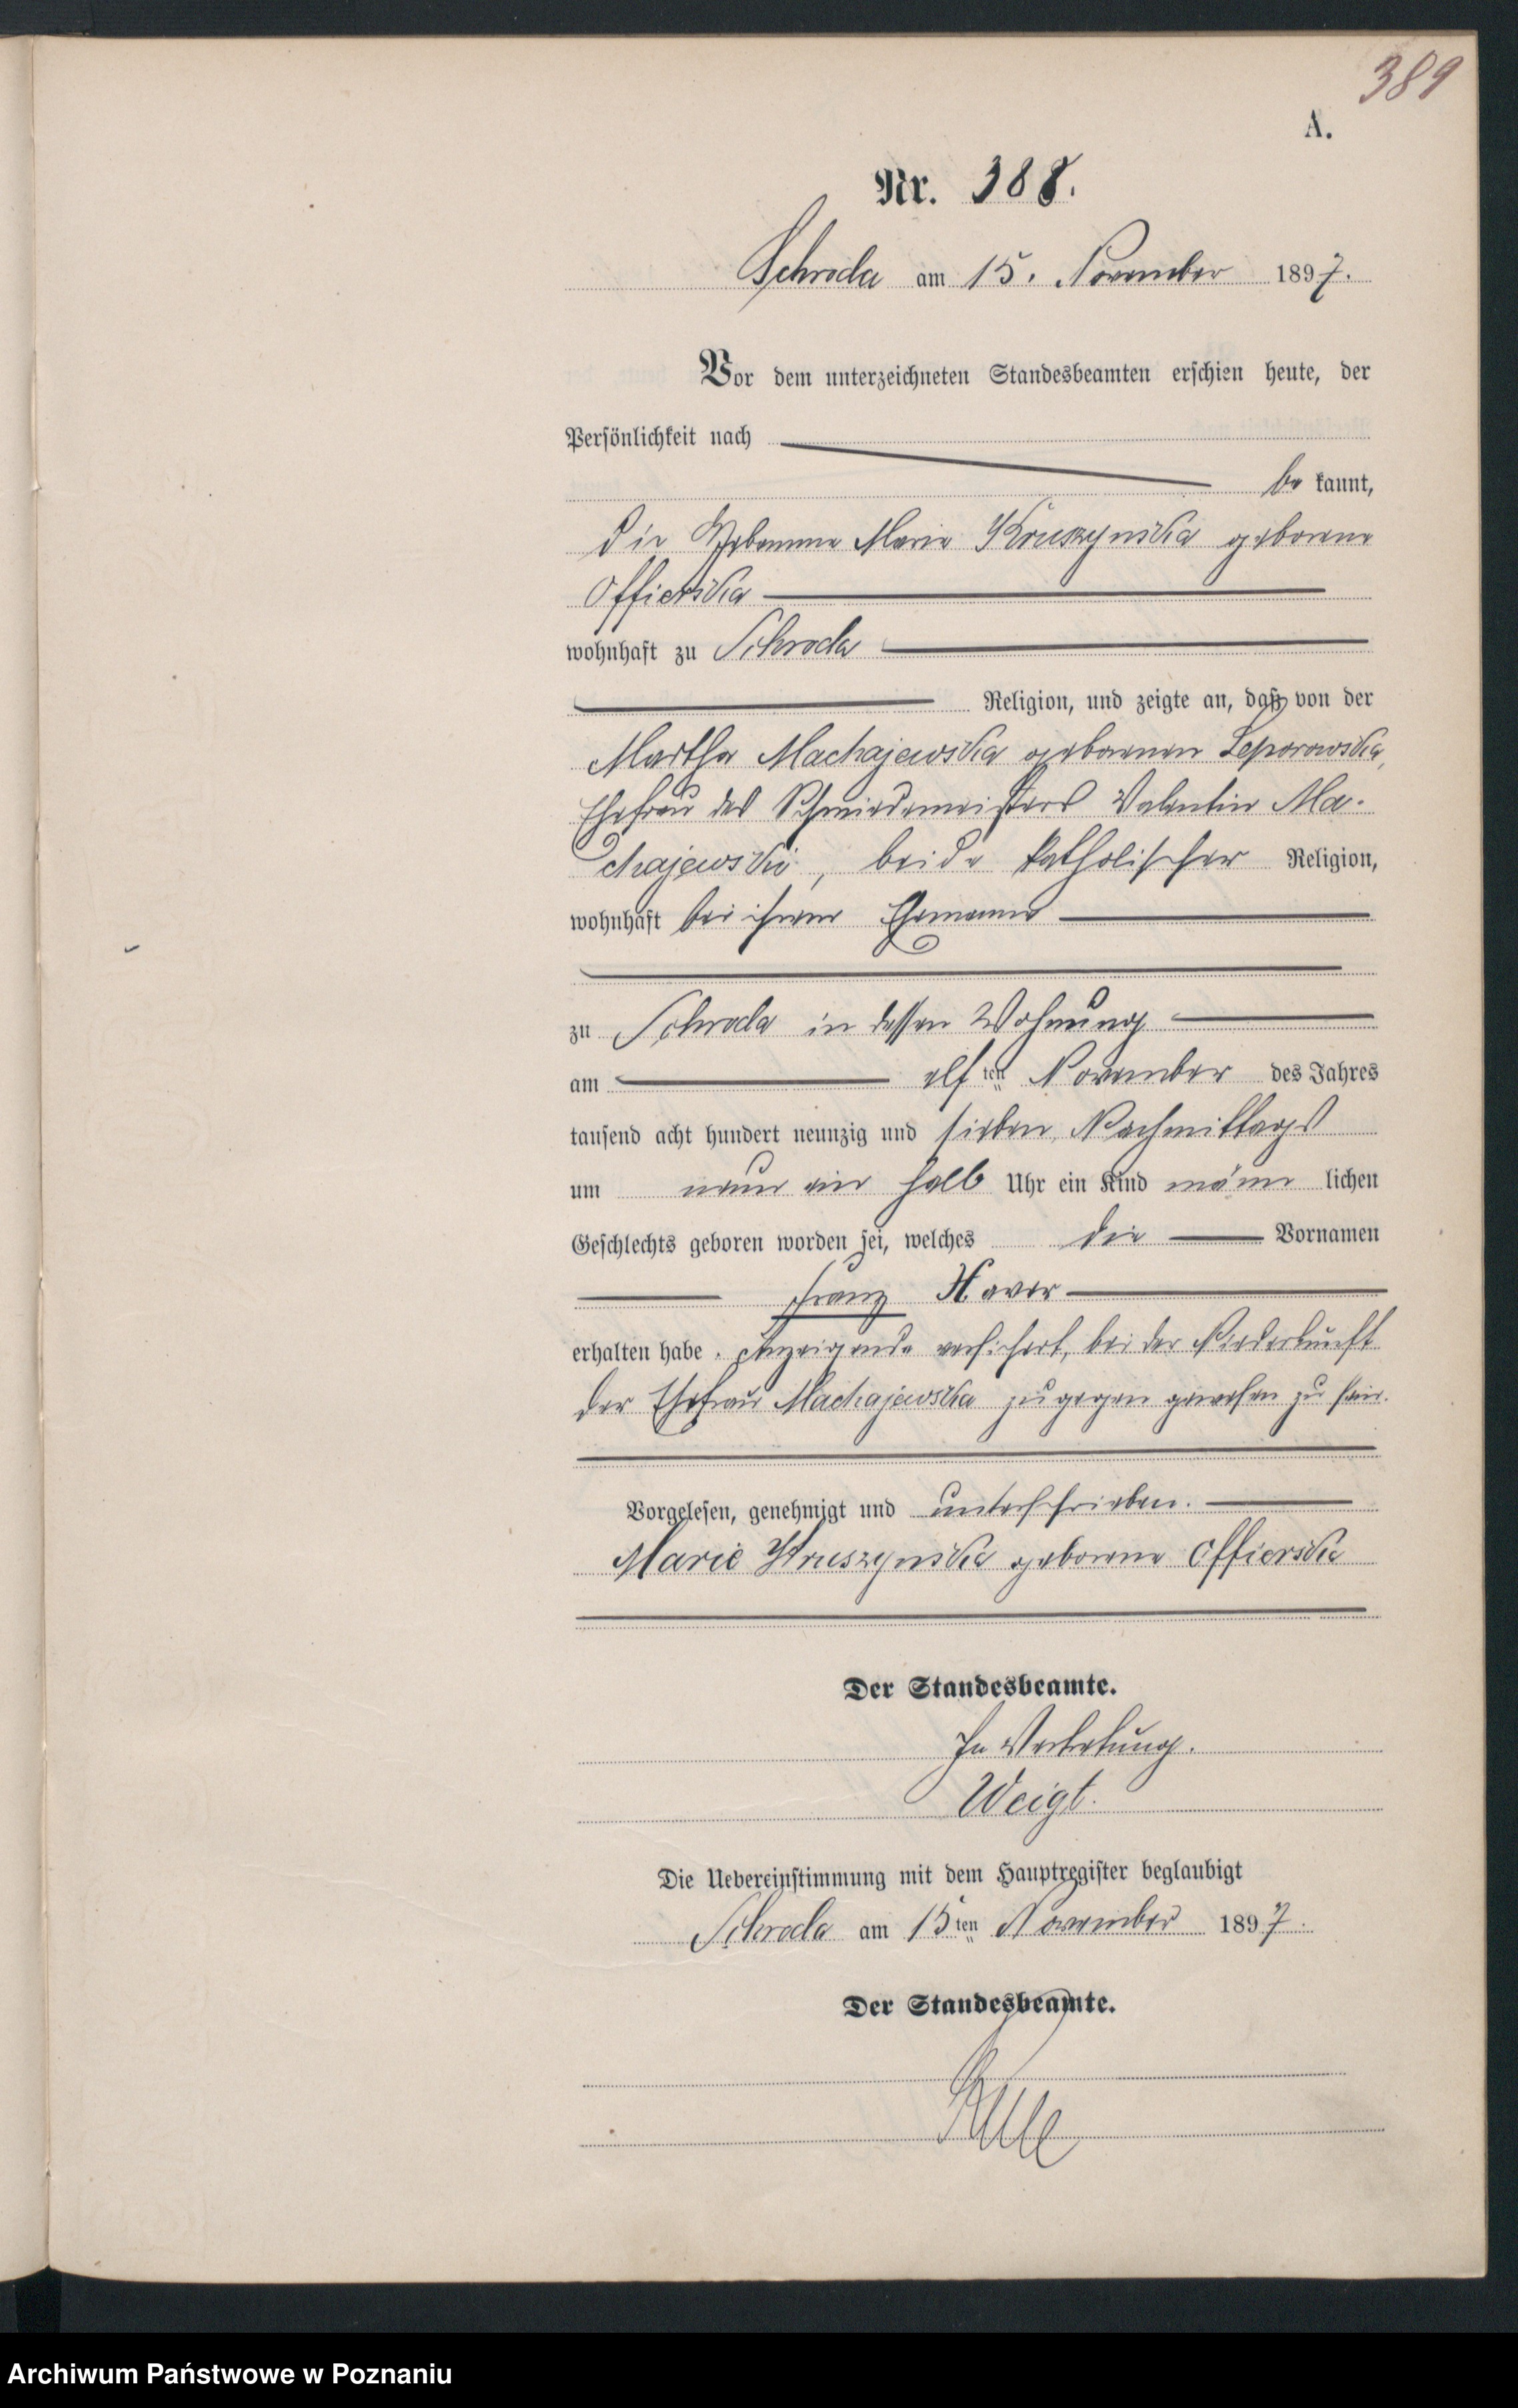 389
A.
Nr. 388.
Schroda am 15. November 1897.
Vor dem unterzeichneten Standesbeamten erschien heute, der
Persönlichkeit nach
be kannt,
die Hebamme Marie Kruszynska geborene
Offierska
wohnhaft zu Schroda
Religion, und zeigte an, daß von der
Martha Machajewska geborenen Leporowska,
Ehefrau des Schmiedemeisters Valentin Ma-
chajewski, beide katholischer Religion,
wohnhaft bei ihrem Ehemanne
zu Schroda in dessen Wohnung
am elf ten November des Jahres
tausend acht hundert neunzig und sieben, Nachmittags
um neun ein halb Uhr ein Kind männ lichen
Geschlechts geboren worden sei, welches die Vornamen
Franz Xaver
erhalten habe. Anzeigende versichert, bei der Niederkunft
der Ehefrau Machajewska zugegen gewesen zu sein.
Vorgelesen, genehmigt und unterschrieben.
Marie Kruszynska geborene Offierska
Der Standesbeamte.
In Vertretung.
Weigt.
Die Uebereinstimmung mit dem Hauptregister beglaubigt
Schroda am 15ten November 1897.
Der Standesbeamte.
Archiwum Państwowe w Poznaniu